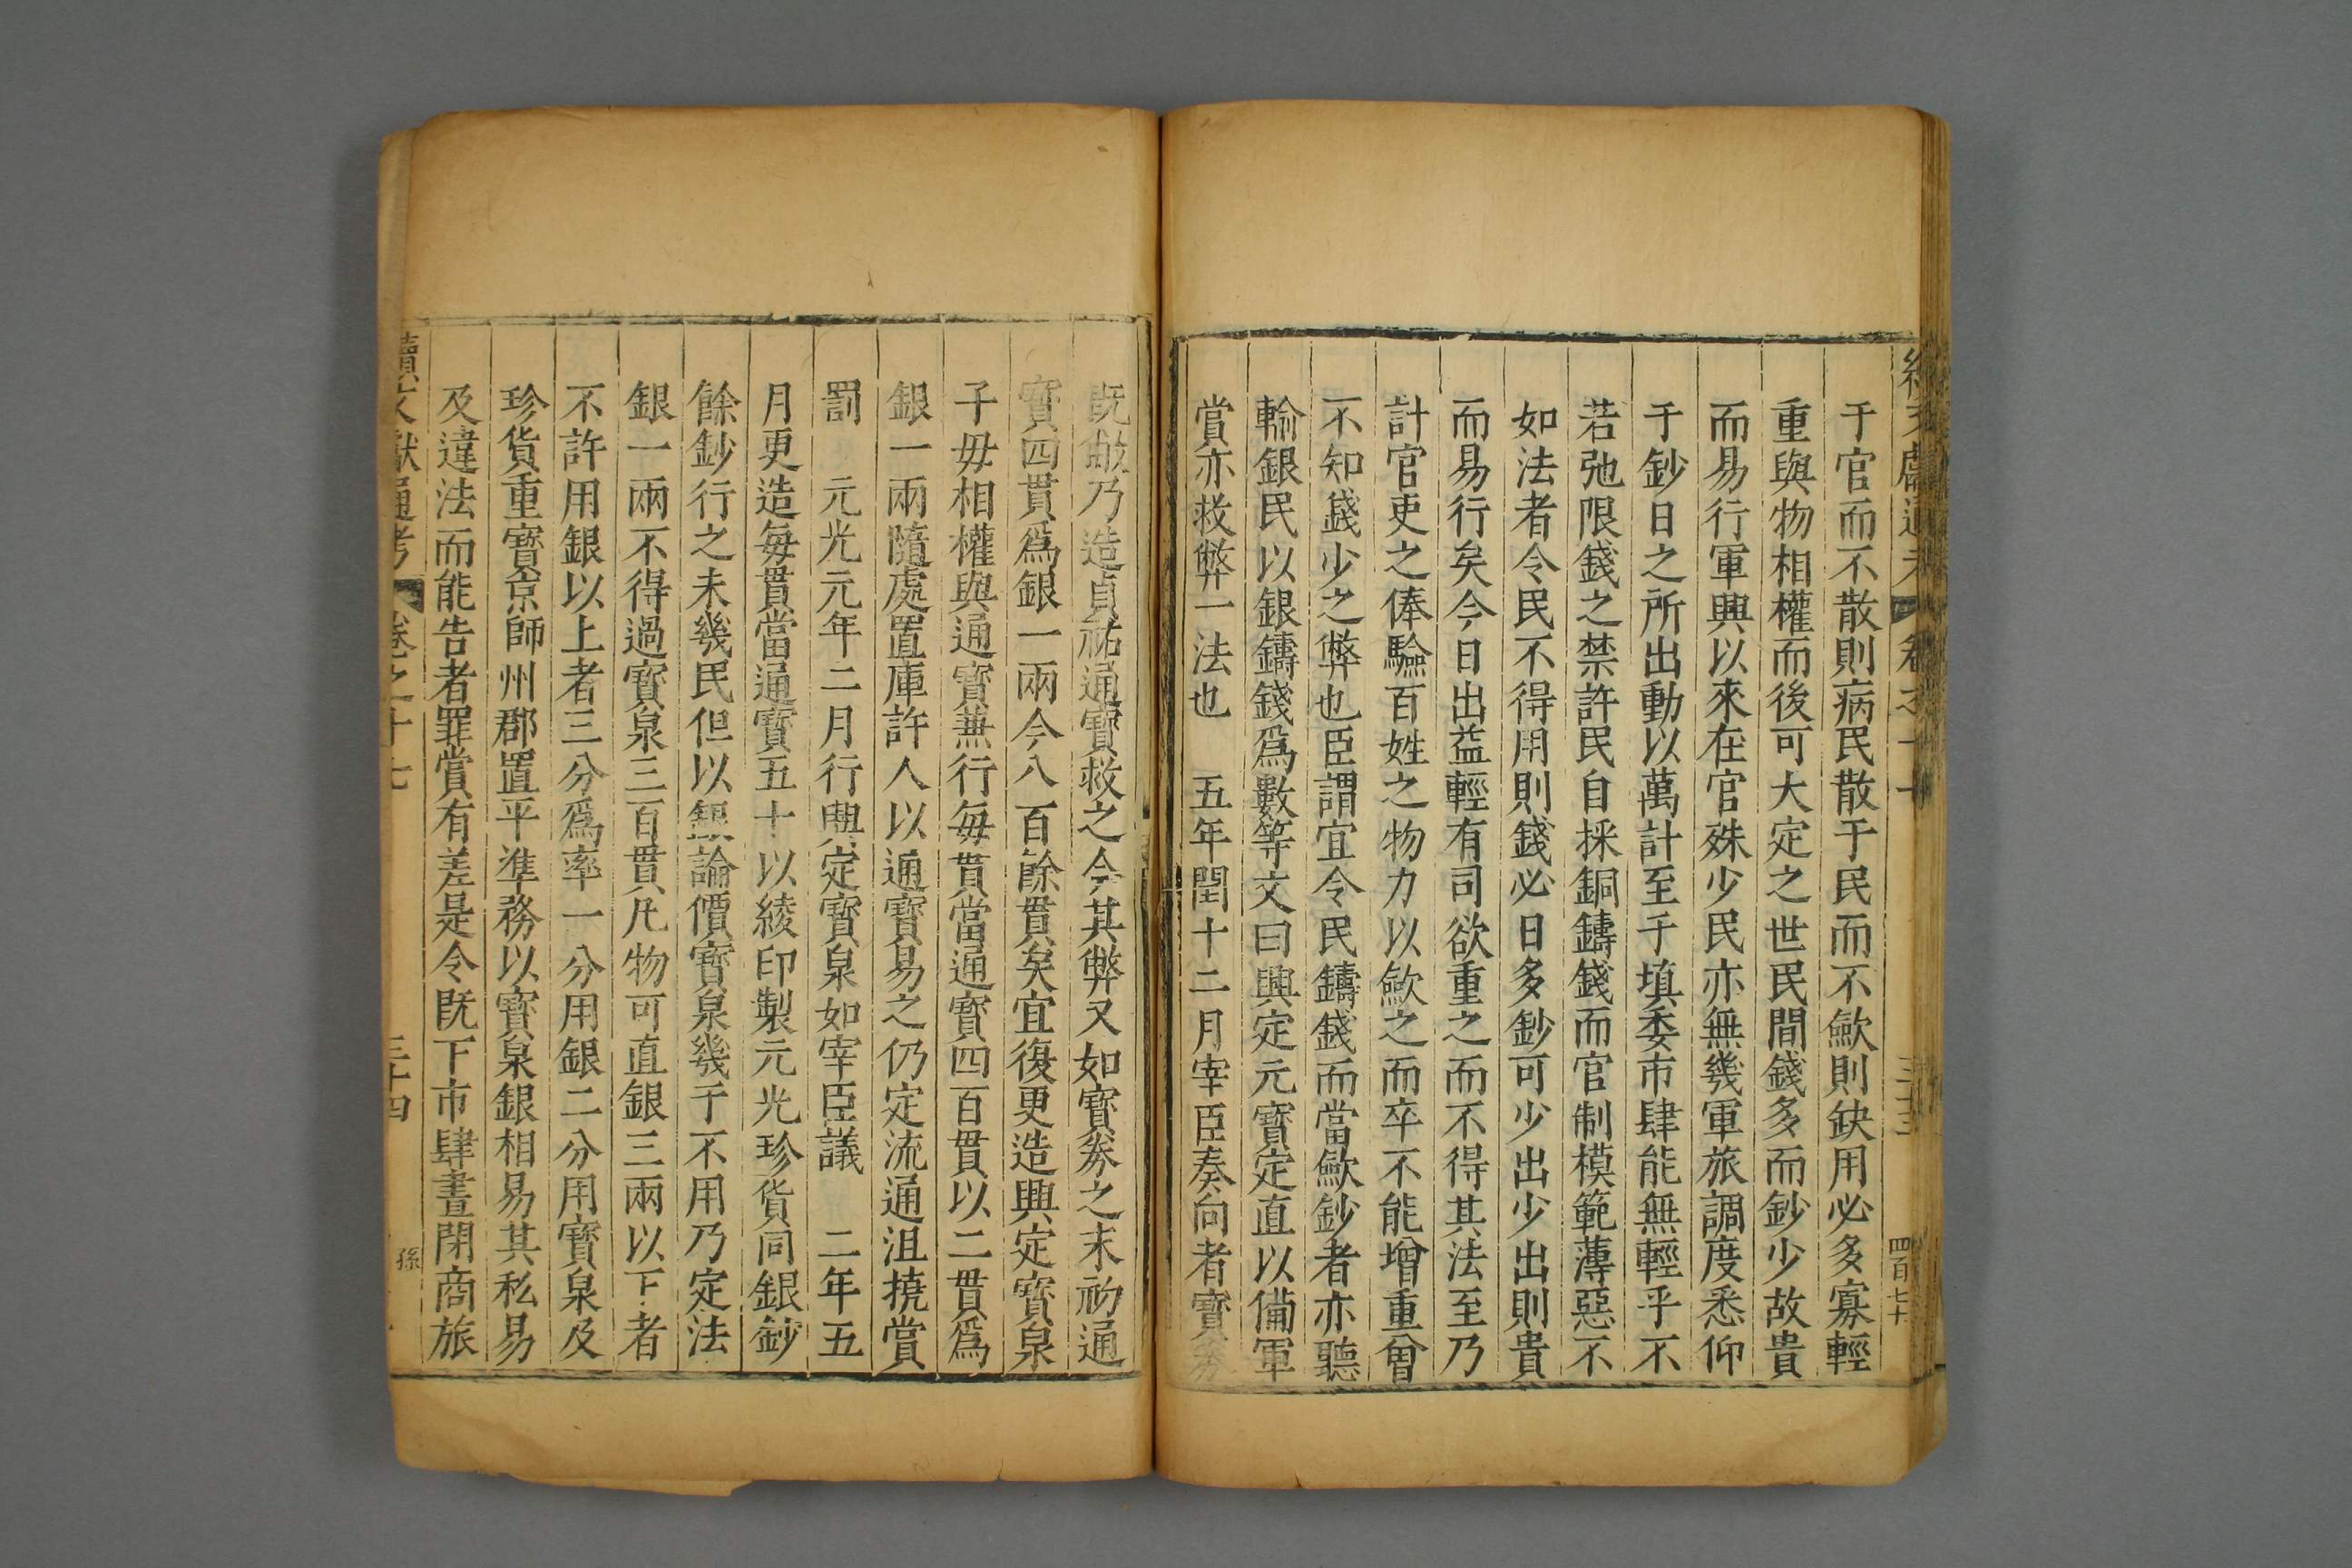 于官而不散則病民散于民而不歛則缺用必多寡輕
重與物相權而後可大定之世民間錢多而鈔少故貴
而易行軍興以來在官殊少民亦無幾軍旅調度悉仰
于鈔日之所出動以萬計至于填委市肆能無輕乎不
若弛限錢之禁許民自採銅鑄錢而官制模範薄惡不
如法者令民不得用則錢必日多鈔可少出少出則貴
而易行矣今日出益輕有司欲重之而不得其法至乃
計官吏之俸驗百姓之物力以歛之而卒不能增重曾
不知錢少之弊也臣謂宜令民鑄錢而當歛鈔者亦聽
輸銀民以銀鑄錢爲數等文曰興定元寶定直以備軍
賞亦救弊一法也　五年閏十二月宰臣奏向者寶券
既敝乃造貞祐通寶救之今其弊又如寶券之末初通
寶四貫爲銀一兩今八百餘貫矣宜復更造興定寶泉
子毋相權與通寶兼行每貫當通寶四百貫以二貫爲
銀一兩隨處置庫許人以通寶易之仍定流通沮撓賞
罰　元光元年二月行興定寶泉如宰臣議　二年五
月更造每貫當通寶五十以綾印製元光珍貨同銀鈔
餘鈔行之未幾民但以銀論價寶泉幾于不用乃定法
銀一兩不得過寶泉三百貫凡物可直銀三兩以下者
不許用銀以上者三分爲率一分用銀二分用寶泉及
珍貨重寶京師州郡置平準務以寶泉銀相易其私易
及違法而能告者罪賞有差是令既下市肆晝閉商旅
續文獻通考 卷之十七 三十四 孫